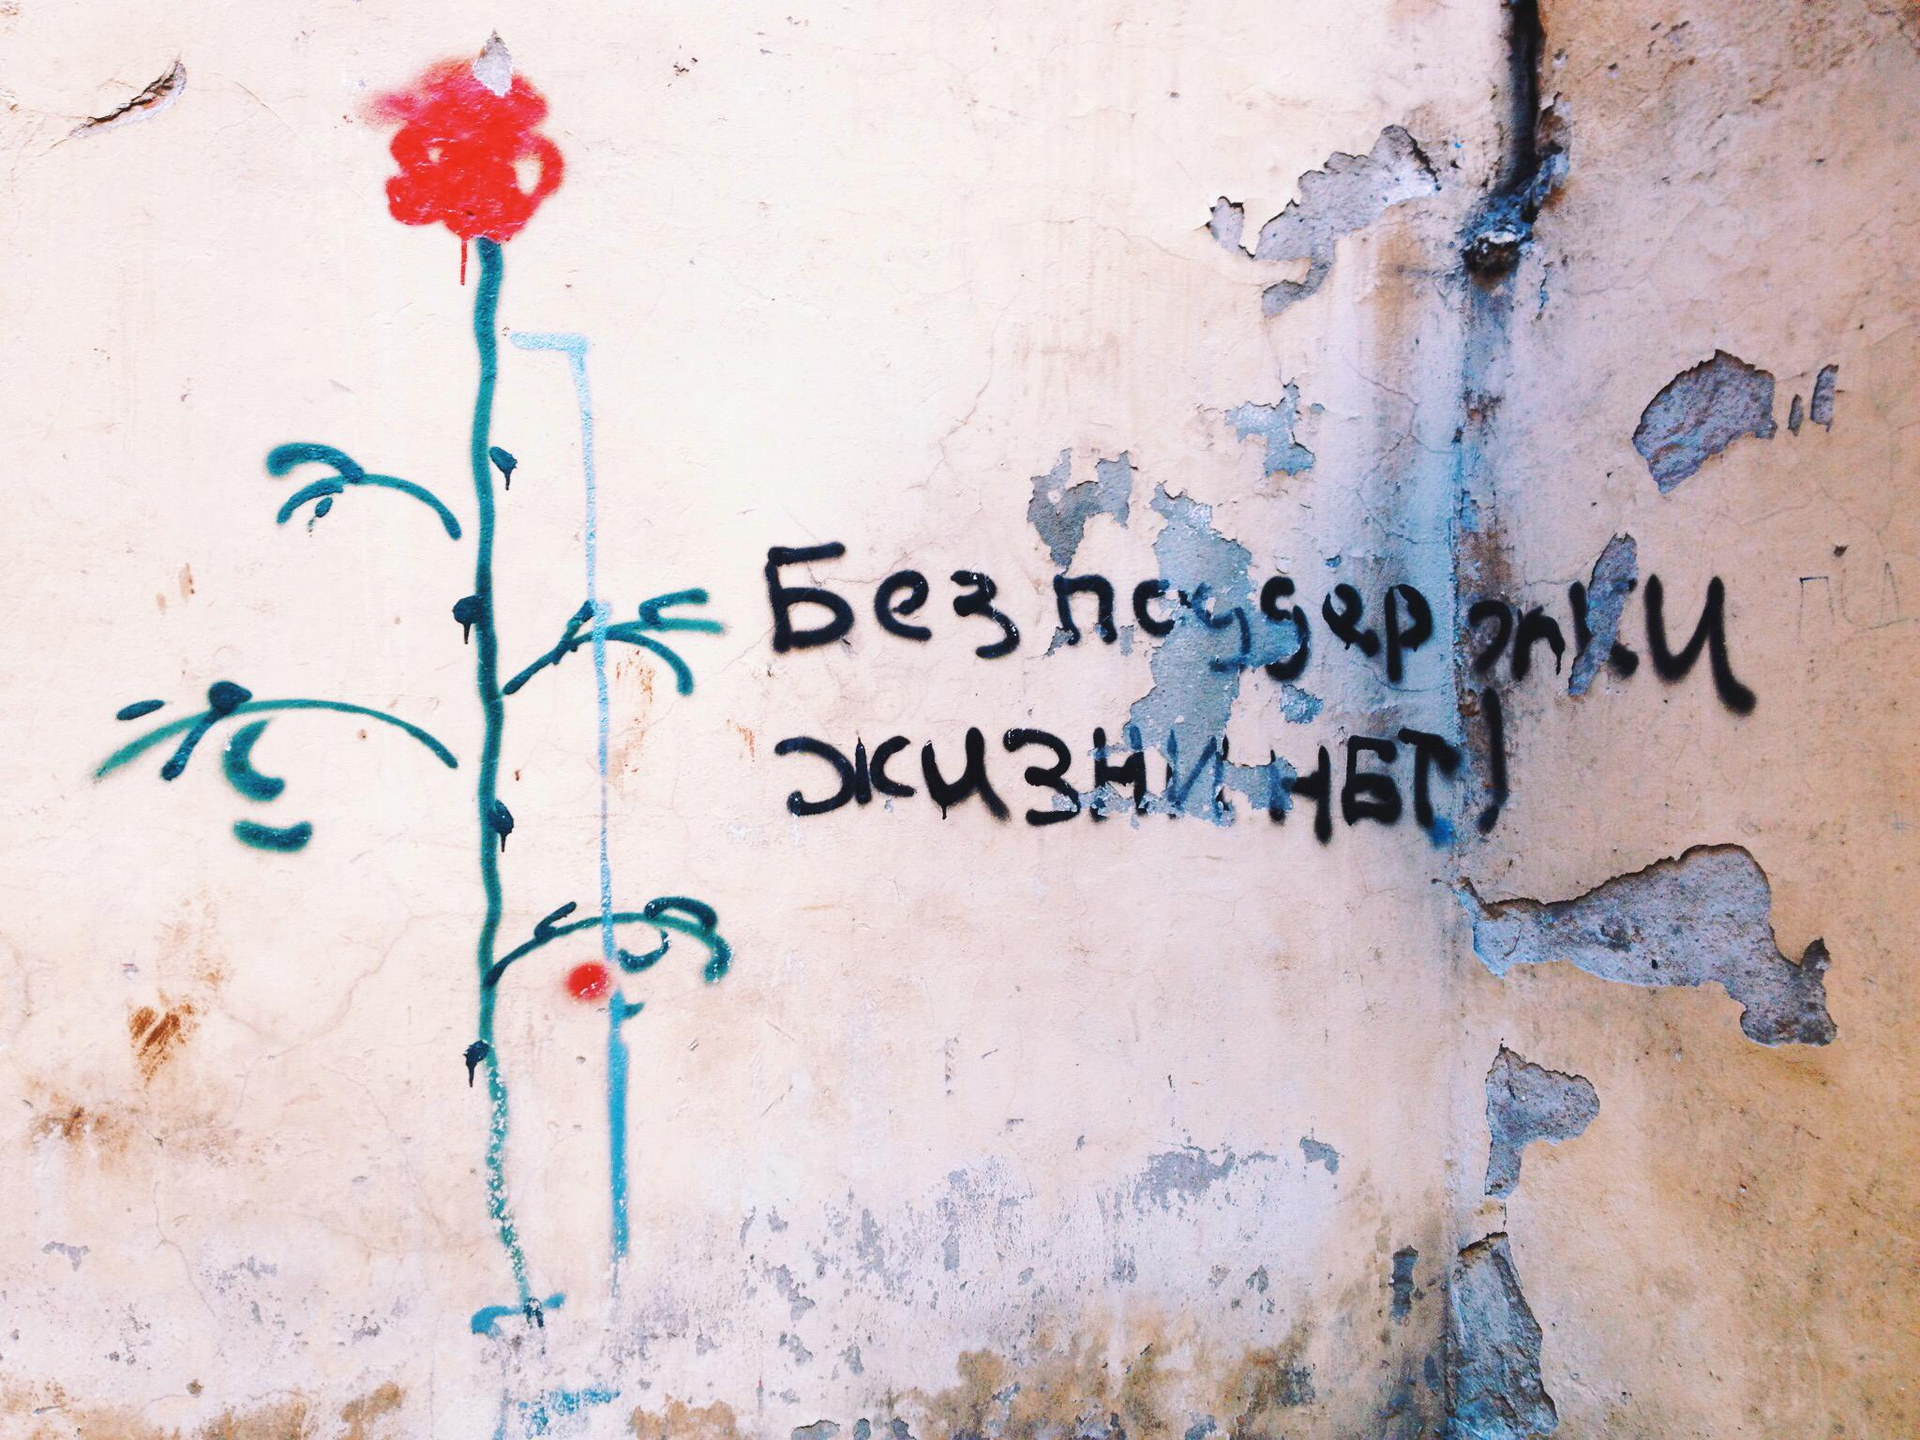 Без поддержки
жизни нет!